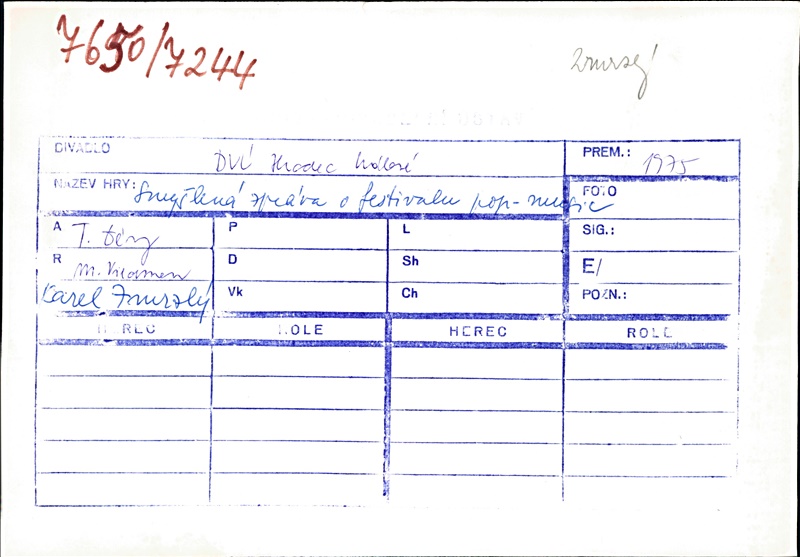 7650/7244
Zmrzlý
DIVADLO DVÚ Hradec Králové PREM.: 1975
NÁZEV HRY: Smyšlená zpráva o festivalu pop-music FOTO
A T. Déry P L SIG.:
R M. Vildman D Sh E/
Karel Zmrzlý Vk Ch POZN.:
HEREC ROLE HEREC ROLE